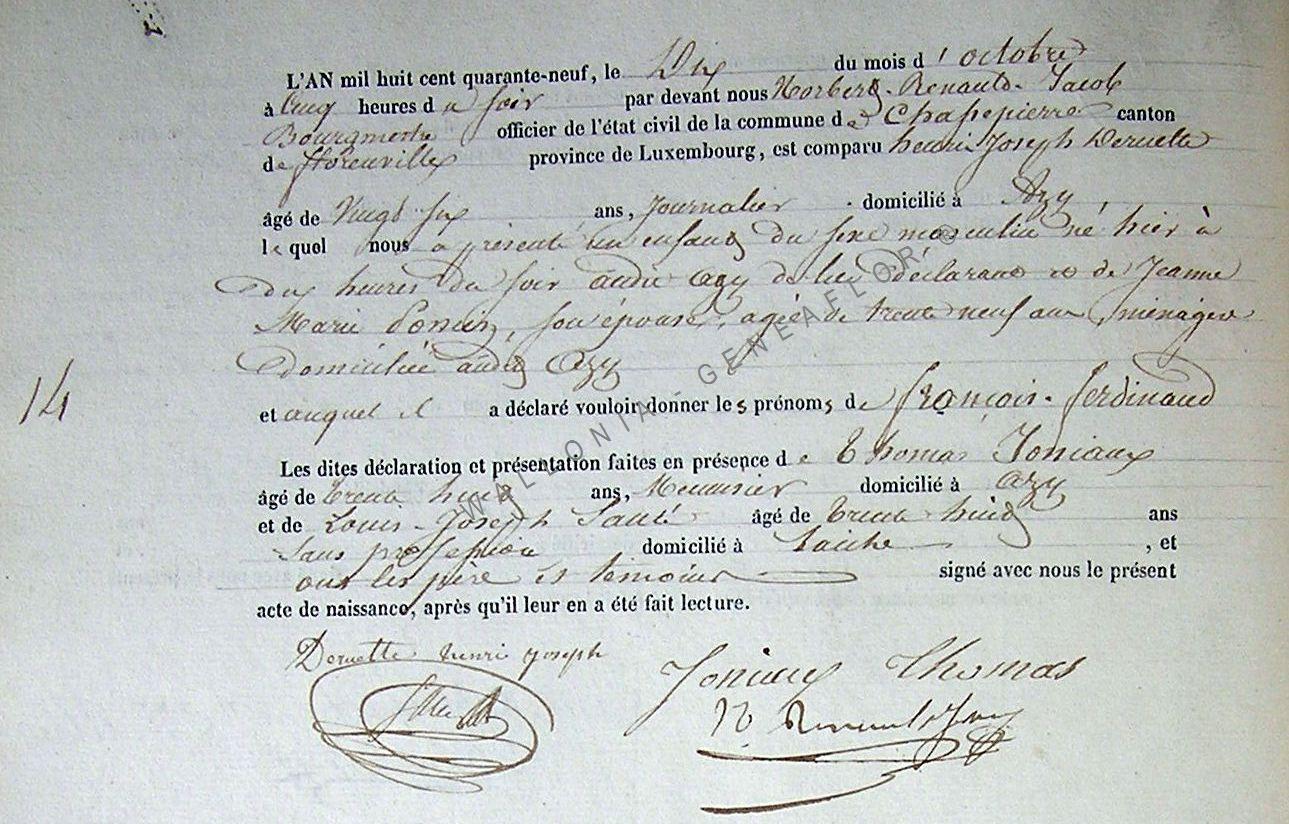 L'AN mil huit cent quarante-neuf, le Dix du mois d'octobre
à cinq heures du soir par devant nous Norbert-Renauld-Jacob
Bourgmestre officier de l'état civil de la commune de Chassepierre canton
de florenville province de Luxembourg, est comparu henri Joseph Deruette
âgé de Vingt six ans, Journalier domicilié à Azy
lequel nous a présenté un enfant du sexe masculin né hier à
dix heures du soir audit azy de lui déclarant et de Jeanne
Marie son épouse, agée de trente neuf ans, ménagère
domiciliée audit Azy
14
et auquel il a déclaré vouloir donner les prénoms de françois-ferdinand
Les dites déclaration et présentation faites en présence de Thomas Joniaux
âgé de trente huit ans, Menuisier domicilié à azy
et de Louis-Joseph âgé de trente huit ans
Sans profession domicilié à Laiche, et
ont les père et témoins signé avec nous le présent
acte de naissance, après qu'il leur en a été fait lecture.
Deruette henri joseph
Joniaux Thomas
N. Renauld
WALLONIA - GENEAFLOR ©